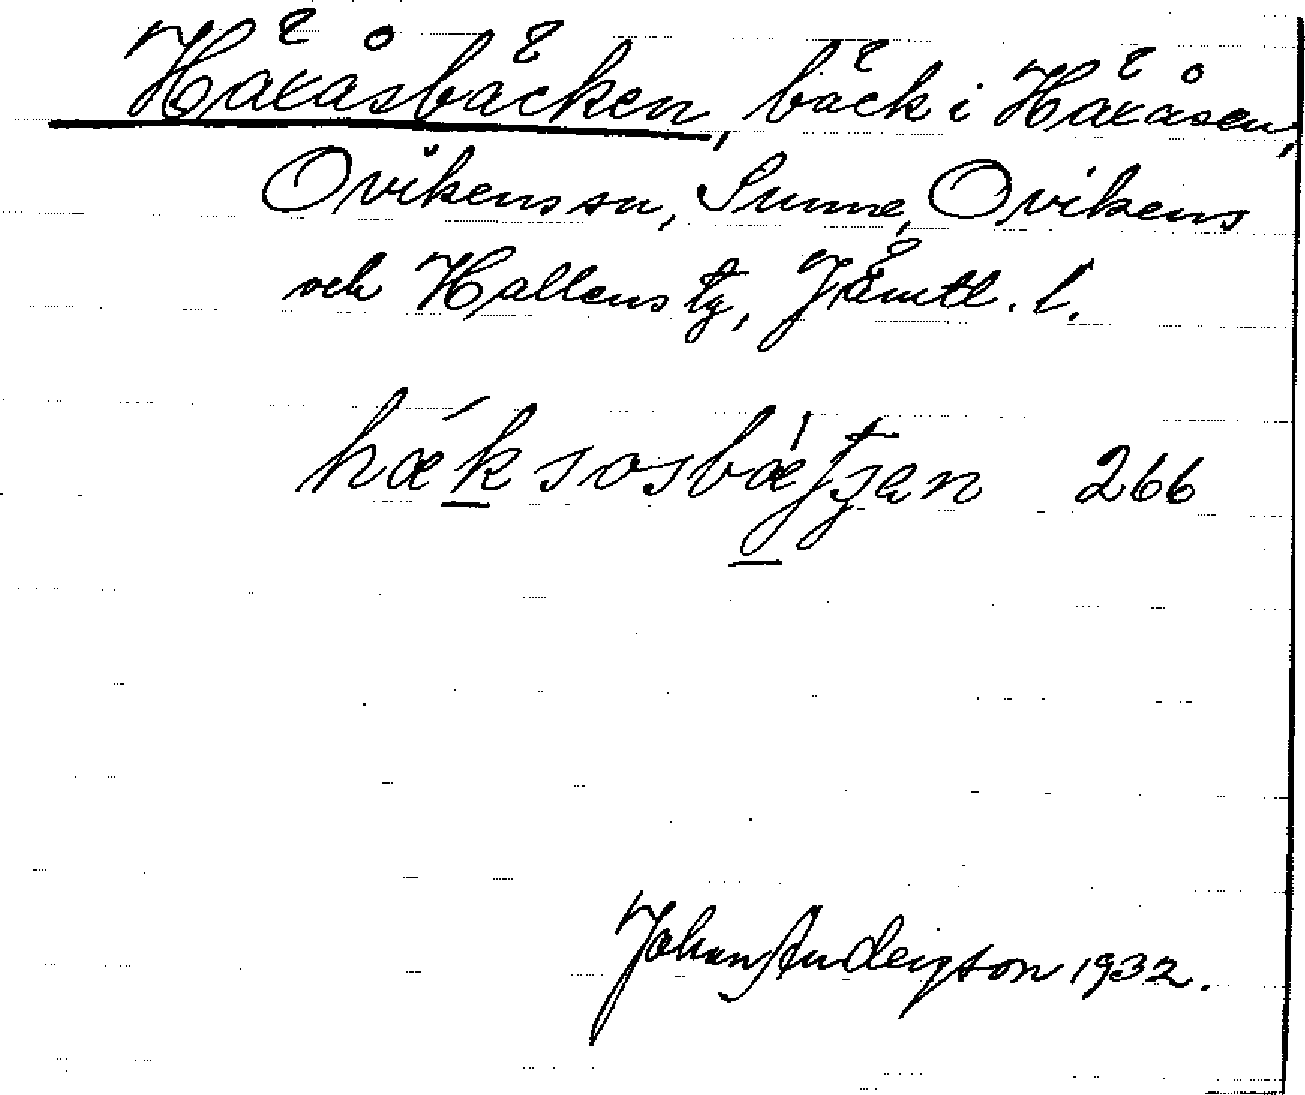 Häxåsbäcken, bäck i Häxåsen,
Ovikens sn, Sunne, Ovikens
och Hallens tg, Jämtl. l.
hæksosbæʃtʃan 266
Johan Anderson 1932.